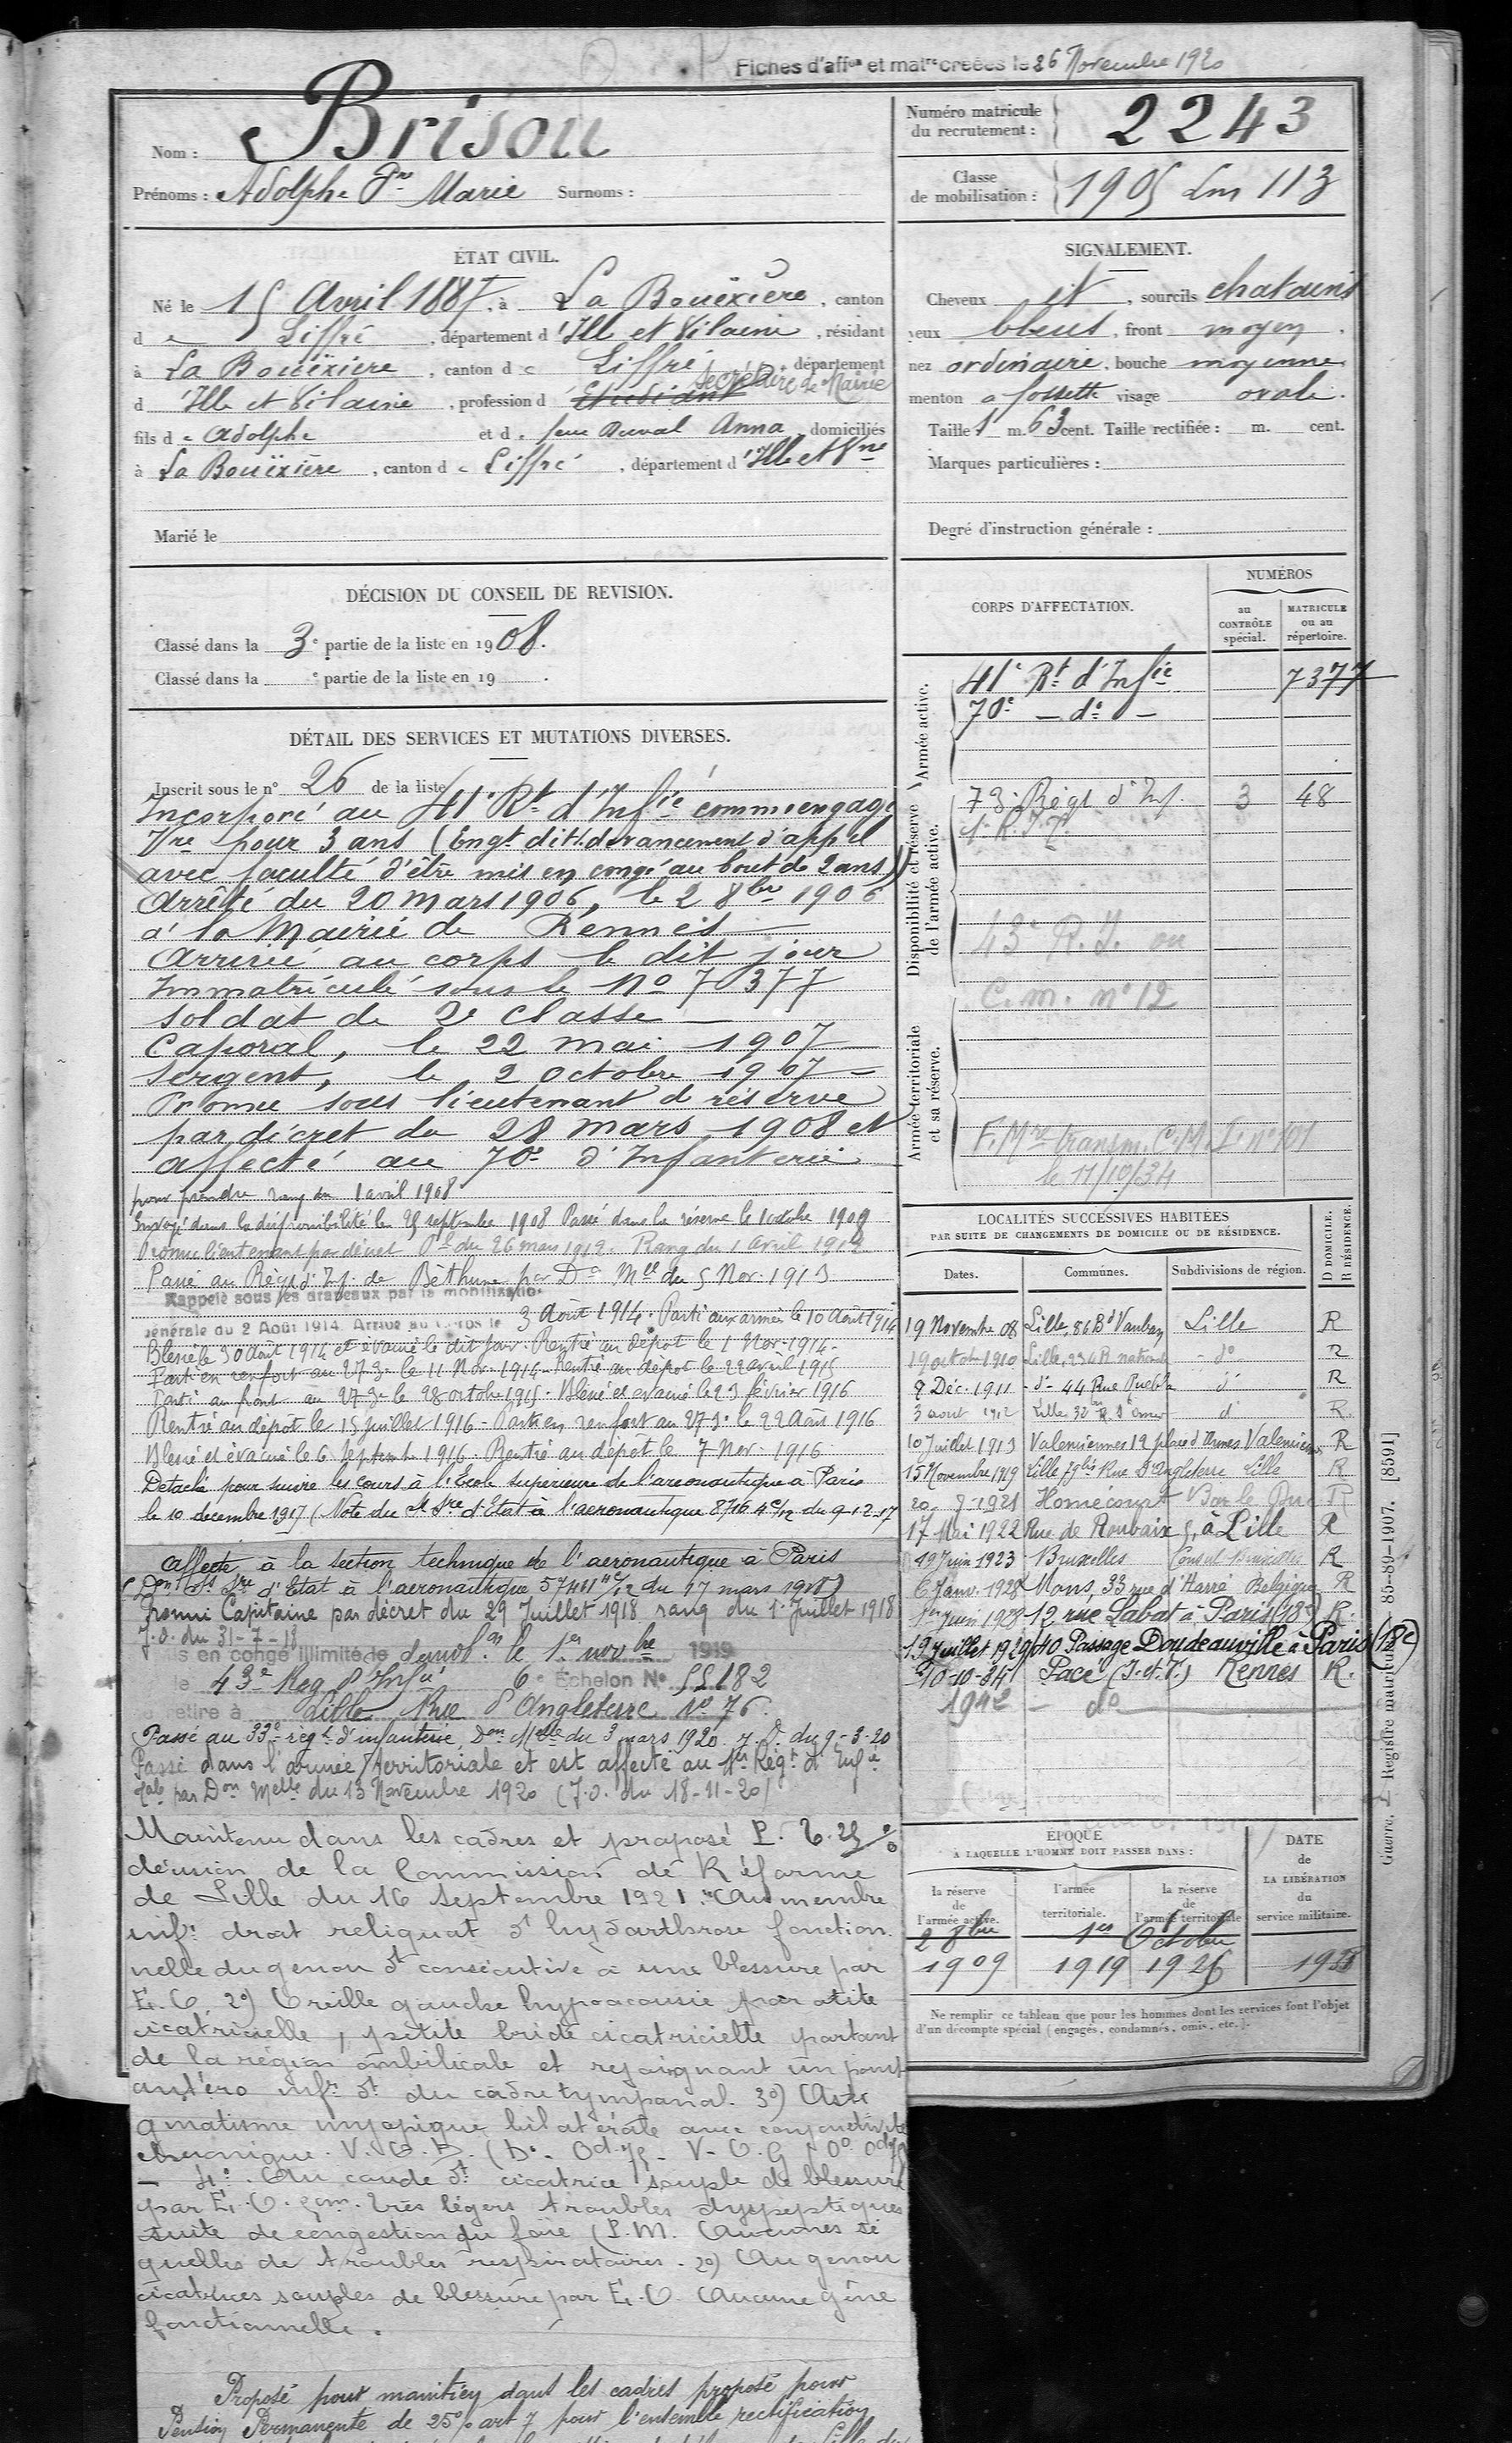 Fiches d'affon et matre créées le 26 Novembre 1920
Nom : Brisou
Prénoms : Adolphe Pre Marie Surnoms :
Numéro matricule du recrutement : 2243
Classe de mobilisation : 1905 Lm 113
ÉTAT CIVIL.
Né le 15 Avril 1887, à La Bouëxière, canton
de Liffré, département d'Ille et Vilaine, résidant
à La Bouëxière, canton de Liffré, département
d'Ille et Vilaine, profession d'Etudiant Secrétaire de Mairie
fils de Adolphe et de feue Duval Anna, domiciliés
à La Bouëxière, canton de Liffré, département d'Ille et Vne
Marié le
SIGNALEMENT.
Cheveux et, sourcils chatains
yeux bleus, front moyen.
nez ordinaire, bouche moyenne
menton a fossette visage ovale.
Taille 1 m. 63 cent. Taille rectifiée : m. cent.
Marques particulières :
Degré d'instruction générale :
DÉCISION DU CONSEIL DE REVISION.
Classé dans la 3e partie de la liste en 1908.
Classé dans la e partie de la liste en 19 .
DÉTAIL DES SERVICES ET MUTATIONS DIVERSES.
Inscrit sous le n° 26 de la liste
Incorporé au 41e Rt d'Infie comme engagé
Vre pour 3 ans (Engt dit devancement d'appel
avec faculté d'être mis en congé au bout de 2 ans)
Arrêté du 20 mars 1906, le 2 8bre 1906
à la Mairie de Rennes
Arrivé au corps le dit jour
Immatriculé sous le No 7377
soldat de 2e classe
Caporal, le 22 mai 1907
Sergent, le 2 octobre 1907
Promu sous lieutenant d réserve
par décret du 28 mars 1908 et
affecté au 70e d'Infanterie
pour prendre rang du 1 avril 1908
Envoyé dans la disponibilité le 25 septembre 1908 Passé dans la réserve le 1 octobre 1909
Promu lieutenant par décret Pel du 26 mars 1912. Rang du 1 avril 1912
Passé au Régt d'Inf. de Béthune par Don Mlle du 5 Nov. 1913
Rappelé sous les drapeaux par la mobilisation
générale du 2 Août 1914. Arrivé au corps le 3 Août 1914. Parti aux armées le 10 Août 1914
Blessé le 30 Août 1914 et évacué le dit jour. Rentré au dépôt le 1 Nov. 1914.
Parti en renfort au 273e le 11 Nov. 1914. Rentré au dépôt le 22 avril 1915
Parti au front au 273e le 28 octobre 1915. Blessé et évacué le 23 février 1916
Rentré au dépôt le 15 juillet 1916 - Parti en renfort au 273e le 22 Août 1916
Blessé et évacué le 6 Septembre 1916. Rentré au dépôt le 7 Nov. 1916
Détaché pour suivre les cours à l'Ecole supérieure de l'aéronautique à Paris
le 10 decembre 1917 (Note du S Sre d'Etat à l'aéronautique 8716 4e/12 du 9-12-17
affecté à la section technique de l'aéronautique à Paris
(Don S Sre d'Etat à l'aéronautique 57411 4e/12 du 17 mars 1918)
Promu Capitaine par décret du 29 Juillet 1918 rang du 1er Juillet 1918
J.O. du 31-7-18
Mis en congé illimité de démob.on le 1er novbre 1919
le 43e Reg d'Infie 6e Échelon N° 55182
se retire à Lille Rue d'Angleterre No 76
Passé au 33e régt d'infanterie, Don Melle du 3 mars 1920. J.O. du 9-3-20
Passé dans l'armée territoriale et est affecté au 1er Régt d'Infie
par Don Melle du 13 Novembre 1920 (J.O. du 18-11-20)
Maintenu dans les cadres et proposé P. T. 25%
décision de la Commission de Réforme
de Lille du 16 Septembre 1921. "Au membre
infr droit reliquat dt hydarthrose fonction
nelle du genou dt consécutive à une blessure par
E. O. 2°) Oreille gauche hypoacousie par otite
cicatricielle, petite bride cicatricielle partant
de la région ombilicale et rejoignant un point
antéro infr dt du cadre tympanal. 3°) Asti
gmatisme myopique bilatérale avec conjonctivite
chronique. V.O.D. (D° - Od 75 - V.O.G. 0° Od 75
- 4°. Au coude dt cicatrice souple de blessure
par E. O. 2cm. Très légers troubles dyspeptiques
suite de congestion du foie (P.M. Aucunes sé
quelles de troubles respiratoires. 2°) Au genou
cicatrices souples de blessure par E. O. Aucune gêne
fonctionnelle.
Proposé pour maintien dans les cadres proposé pour
Pension Permanente de 25% art 7 pour l'ensemble rectification
CORPS D'AFFECTATION.
NUMÉROS
au CONTRÔLE spécial.
MATRICULE ou au répertoire.
Armée active.
41e Rt d'Infie 7377
70e - do -
Disponibilité et réserve de l'armée active.
73e Régt d'Inf. 3 48
1er R.I.T.
43e R.I. ou
C.m. n° 12
Armée territoriale et sa réserve.
F. Mre transm. C.M.I. n° 101
le 11/10/34
LOCALITÉS SUCCESSIVES HABITÉES
PAR SUITE DE CHANGEMENTS DE DOMICILE OU DE RÉSIDENCE.
Dates. Communes. Subdivisions de région. D DOMICILE. R RÉSIDENCE.
19 Novembre 08 Lille, 86 Bd Vauban Lille R
19 octobre 1910 Lille, 234 R nationale - do R
8 Déc. 1911 - do - 44 Rue Puebla do R
3 aout 1912 Lille 32 bis R. St omer do R.
10 Juillet 1913 Valenciennes 12 place d'Armes Valenciennes R
15 Novembre 1919 Lille 79 bis Rue D'Angleterre Lille R
20. 8-1921 Homécourt Bar le Duc R
17 Mai 1922 Rue de Roubaix 5, à Lille R
19 Juin 1923 Bruxelles Consul Bruxelles R
6 Janv. 1928 Mons, 33 rue d'Havré Belgique R
1er Juin 1928 12 rue Labat à Paris (18e) R.
19 Juillet 1929 40 Passage Doudeauville à Paris (18e)
10-10-34 Pacé (I.et.V.) Rennes R.
1942 - do
ÉPOQUE
A LAQUELLE L'HOMME DOIT PASSER DANS :
la réserve de l'armée active.
l'armée territoriale.
la réserve de l'armée territoriale
DATE de LA LIBÉRATION du service militaire.
2 8bre 1er Octobre
1909 1919 1926 1938
Ne remplir ce tableau que pour les hommes dont les services font l'objet
d'un décompte spécial (engagés, condamnés, omis, etc.).
Guerre. Registre matricule 85-89-1907. [8591]